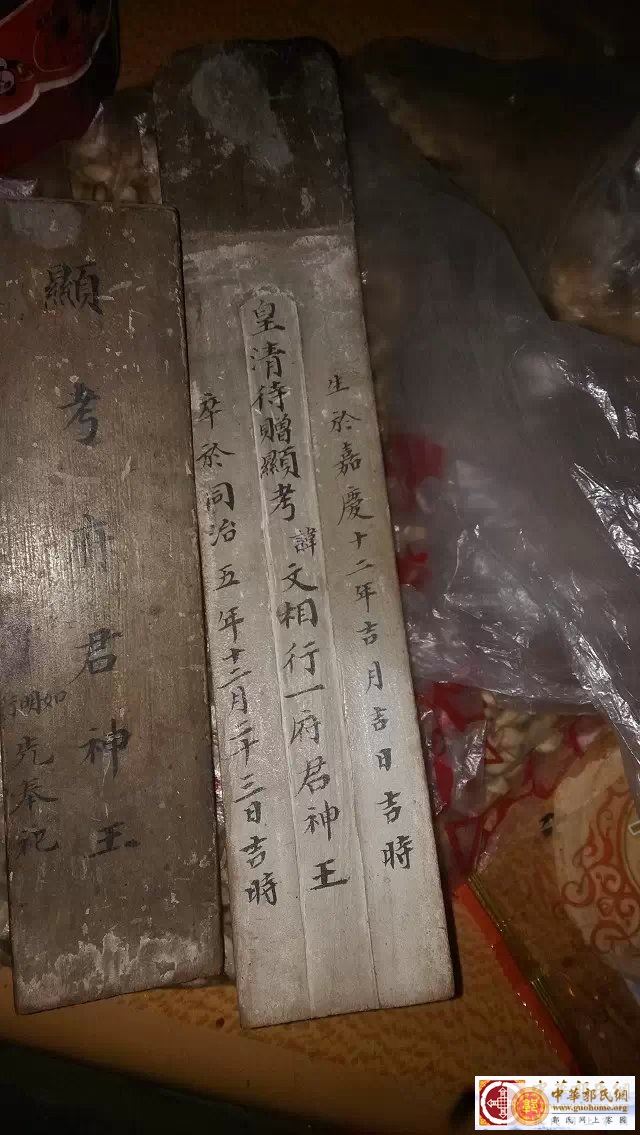 生於嘉慶十二年吉月吉日吉時
皇清待贈顯考諱文相行一府君神王
卒於同治五年十二月二十三日吉時
顯考府君神王
奉祀
中華郭氏網
www.guohome.org
郭氏網上家園